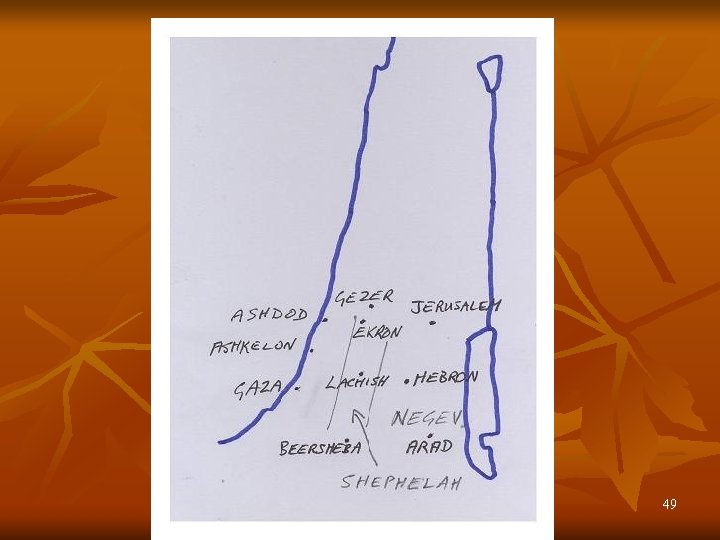 GEZER
JERUSALEM
ASHDOD
EKRON
ASHKELON
LACHISH
HEBRON
GAZA
NEGEV.
BEERSHEBA
ARAD
SHEPHELAH
49